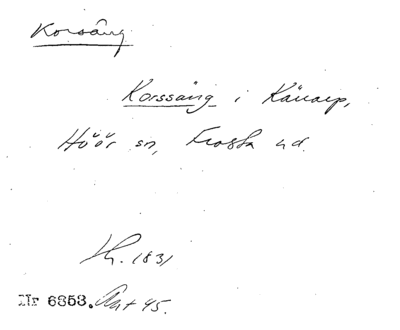 Korsäng
Korssäng i Känarp,
Höör sn, Frosta hd.
Kr. 1831
Nr 6353. Ant 45.